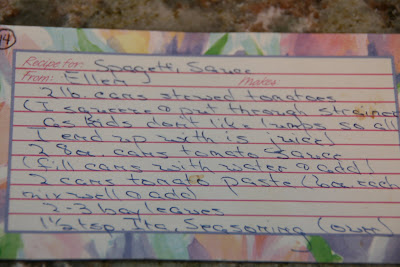 14
Recipe for: Spagetti Sauce
From: Ellen Makes:
2 lb. cans stewed tomatoes
(I squeeze & put through strainer
as kids don't like lumps so all
I end up with is juice)
2 8oz. cans tomato sauce
(fill cans with water & add)
2 cans tomato paste (12oz. each
mix well & add)
2-3 bay leaves
1 1/2 tsp. Ita. Seasoning (own)